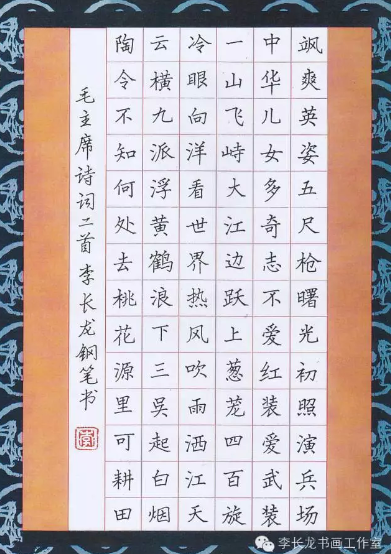 飒爽英姿五尺枪曙光初照演兵场
中华儿女多奇志不爱红装爱武装
一山飞峙大江边跃上葱茏四百旋
冷眼向洋看世界热风吹雨洒江天
云横九派浮黄鹤浪下三吴起白烟
陶令不知何处去桃花源里可耕田
毛主席诗词二首 李长龙钢笔书
李
李长龙书画工作室